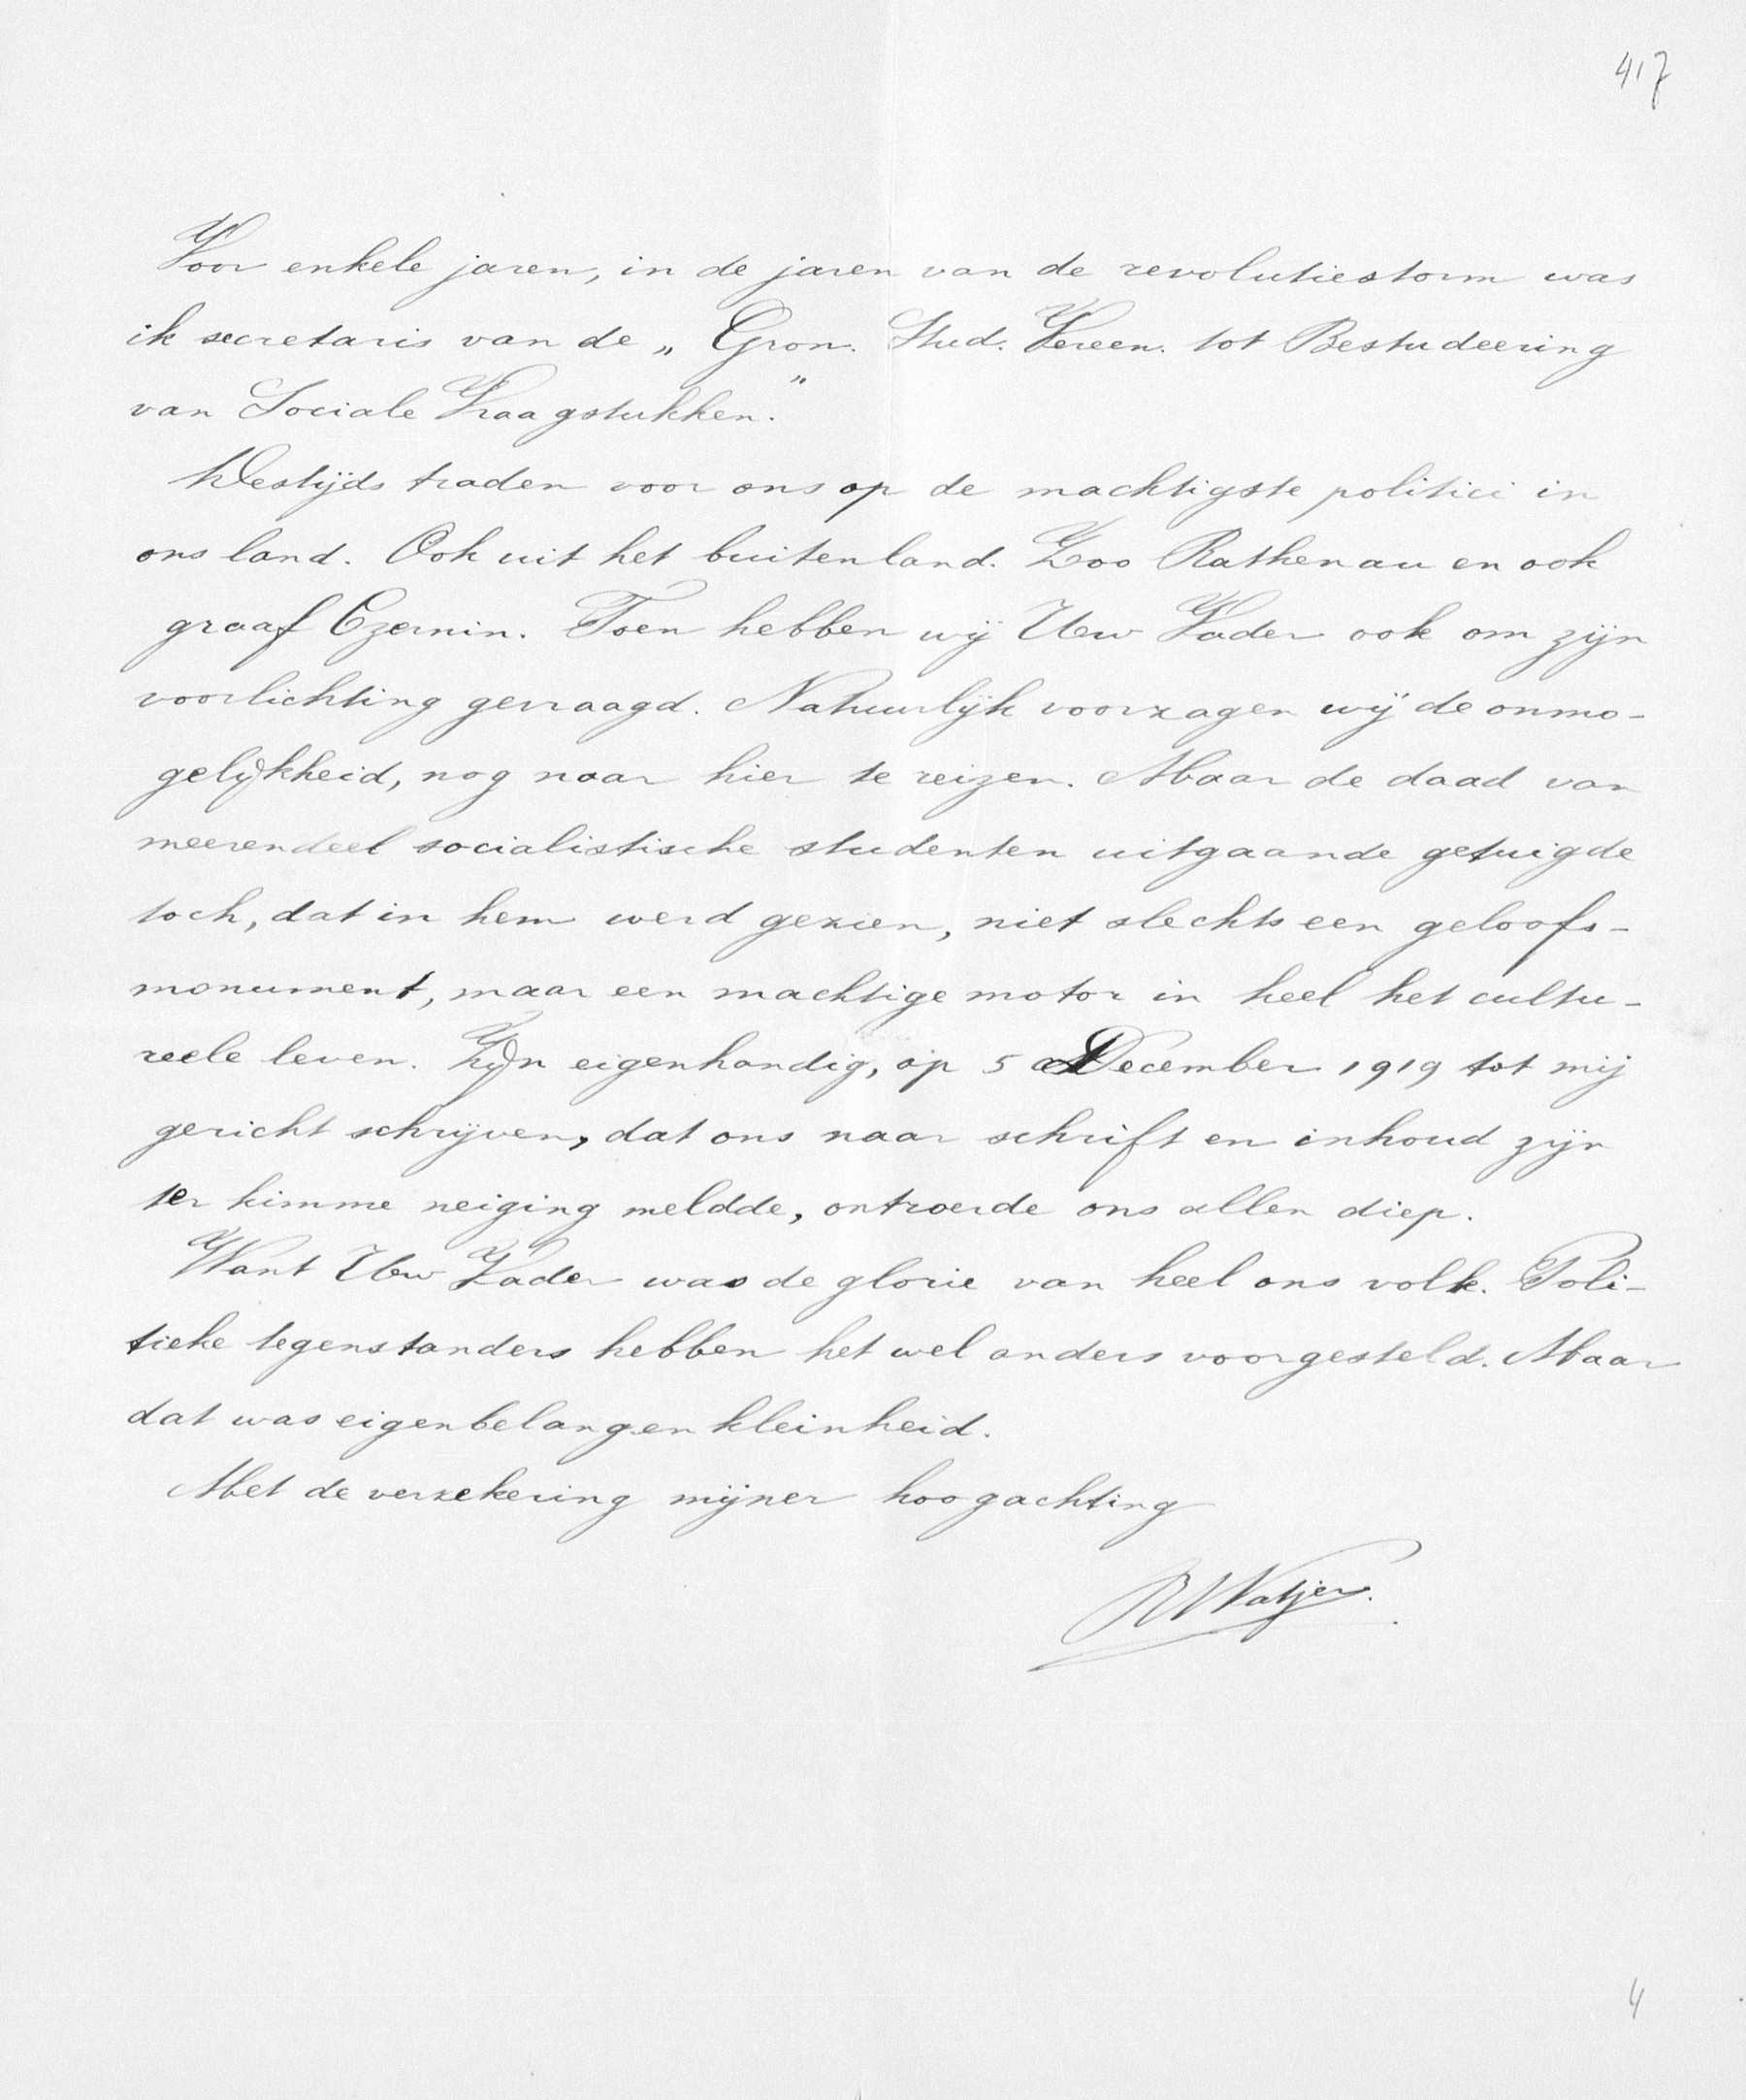 417
Voor enkele jaren, in de jaren van de revolutiestorm was
ik secretaris van de „Gron. Stud. Vereen. tot Bestudeering
van Sociale Vraagstukken."
Destijds traden voor ons op de machtigste politici in
ons land. Ook uit het buitenland. Zoo Rathenau en ook
graaf Czernin. Toen hebben wij Uw Vader ook om zijn
voorlichting gevraagd. Natuurlijk voorzagen wij de onmo-
gelijkheid, nog naar hier te reizen. Maar de daad van
meerendeel socialistische studenten uitgaande getuigde
toch, dat in hem werd gezien, niet slechts een geloofs-
monument, maar een machtige motor in heel het cultu-
reele leven. Zijn eigenhandig, op 5 December 1919 tot mij
gericht schrijven, dat ons naar schrift en inhoud zijn
ter kimme neiging meldde, ontroerde ons allen diep.
Want Uw Vader was de glorie van heel ons volk. Poli-
tieke tegenstanders hebben het wel anders voorgesteld. Maar
dat was eigenbelang en kleinheid.
Met de verzekering mijner hoogachting
4